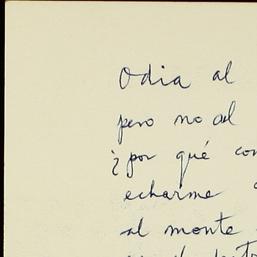 Odia al
pero no al
¿por qué con
echarme
al monte